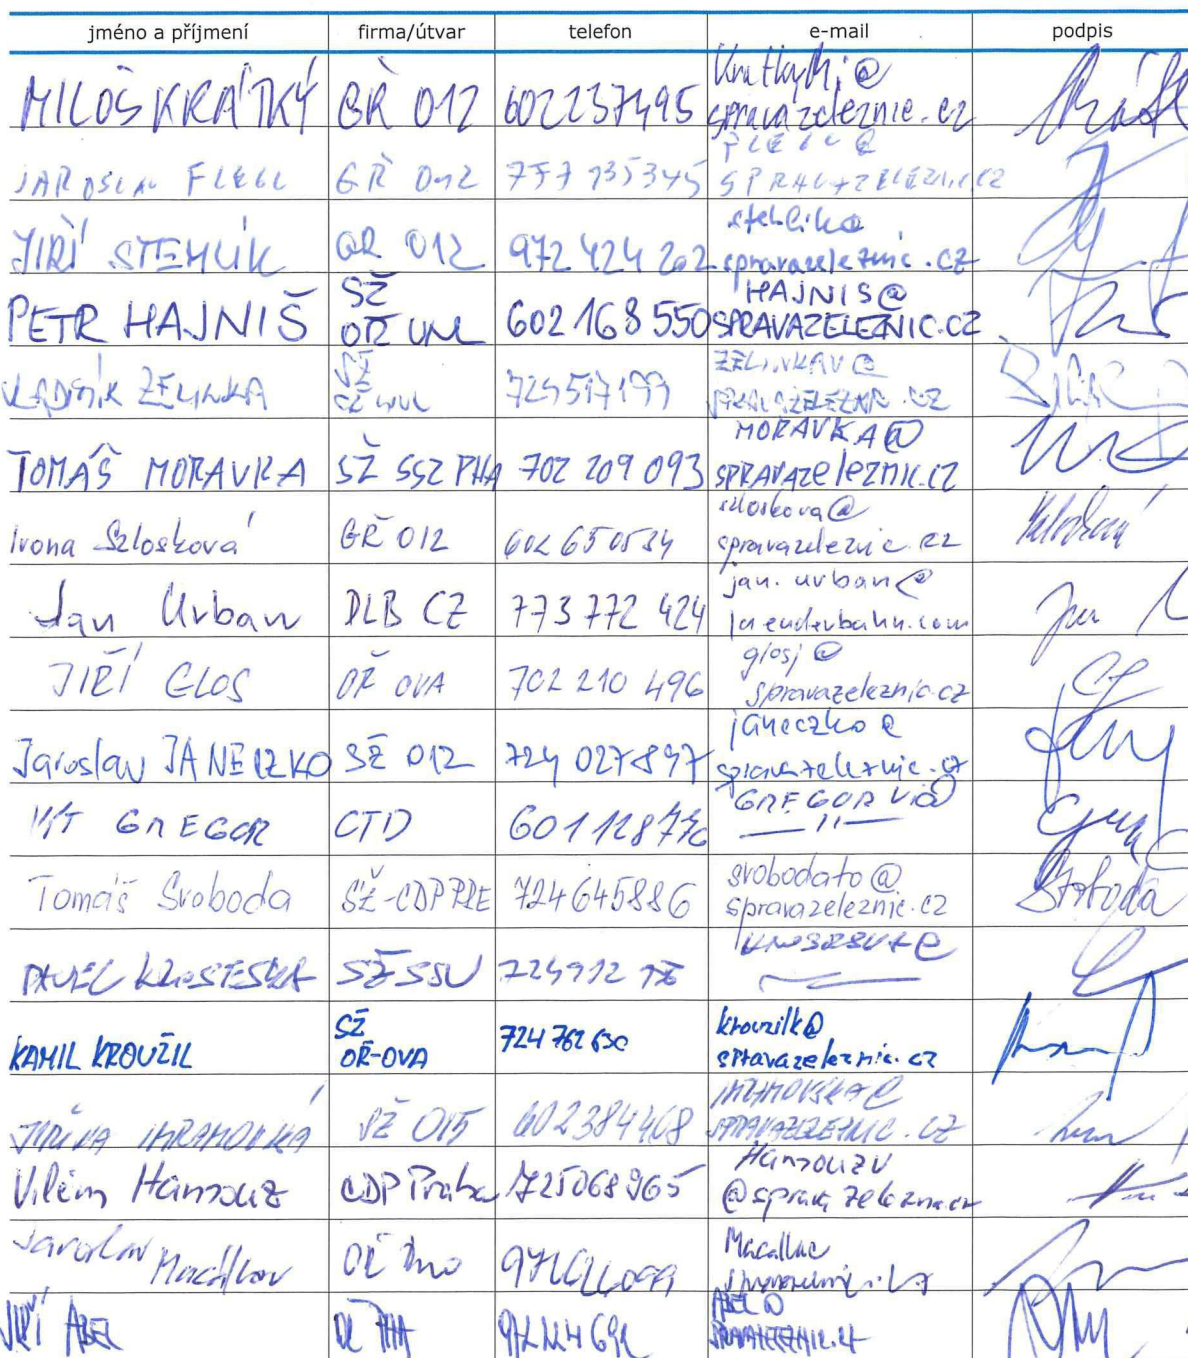 jméno a příjmení firma/útvar telefon e-mail podpis
MILOŠ KRÁTKÝ GŘ 012 602237495 KratkyMi@
spravazeleznic.cz
JAROSLAV FLEGL GŘ 012 FLEGL@
SPRAVAZELEZNIC.CZ
JIŘÍ STEHLÍK GŘ 012 972 424 202 stehlik@
spravazeleznic.cz
PETR HAJNIŠ SŽ HAJNIS@
OŘ UNL 602 168 550 SPRAVAZELEZNIC.CZ
VLADIMÍR ZELINKA SŽ ZELINKAV@
SPRAVAZELEZNIC.CZ
TOMÁŠ MORAVKA SŽ SSZ PHA 702 209 093 MORAVKA@
SPRAVAZELEZNIC.CZ
Ivona Szlosková GŘ 012 602 650534 szloskova@
spravazeleznic.cz
Jan Urban DLB CZ 773 772 424 jan.urban@
laenderbahn.com
JIŘÍ GLOS OŘ OVA 702 210 496 glosj@
spravazeleznic.cz
Jaroslav JANECZKO SŽ 012 724 027897 janeczko@
spravazeleznic.cz
VÍT GREGOR CTD GREGORVI@
— 11 —
Tomáš Svoboda SŽ-CDP PŘE 724645886 svobodato@
spravazeleznic.cz Svoboda
PAVEL SŽ SSV
KAMIL KROUŽIL SŽ
OŘ-OVA 724 762 630 krouzilk@
spravazeleznic.cz
SŽ O15 602384408
SPRAVAZELEZNIC.CZ
Vilém Hansouz CDP Praha 725068965 HansouzV
@spravazeleznic.cz
Jaroslav OŘ
JIŘÍ ABEL OŘ PHA ABEL@
SPRAVAZELEZNIC.CZ